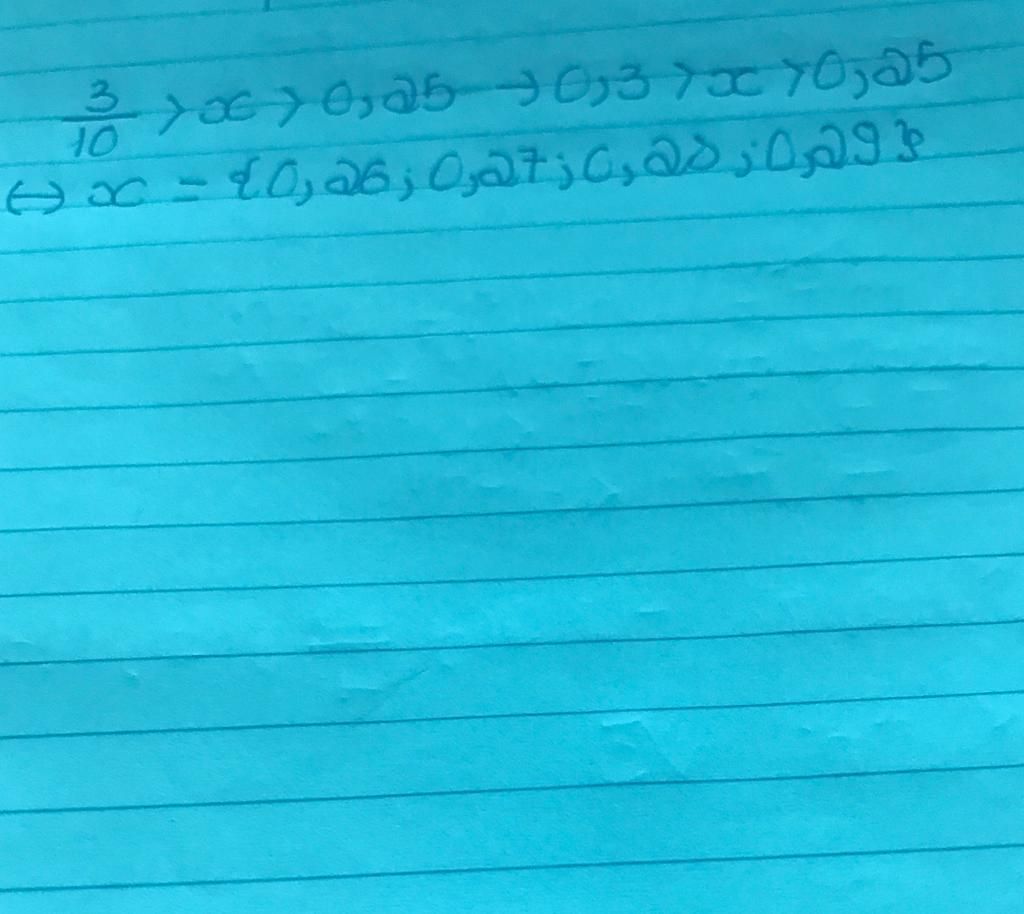 3/10 > x > 0,25 → 0,3 > x > 0,25
↔ x = {0,26; 0,27; 0,28; 0,29}